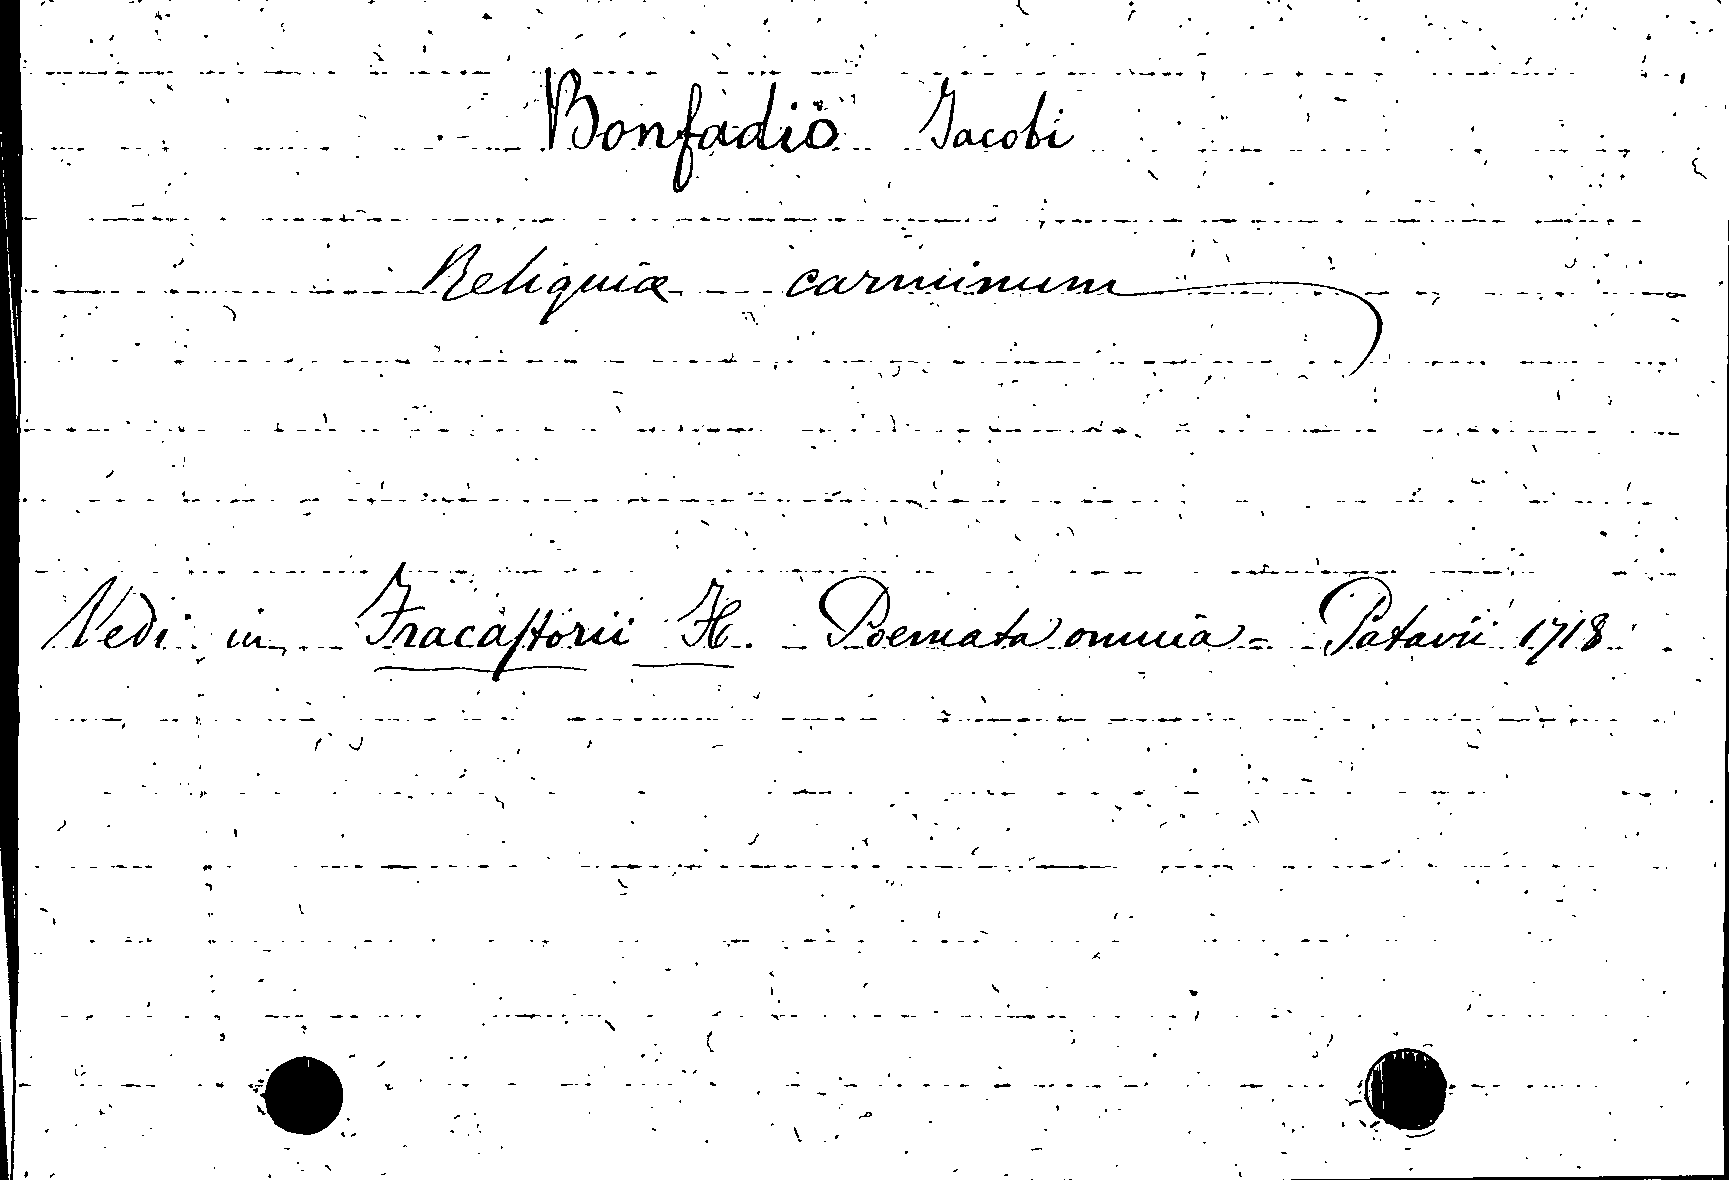 Bonfadio Jacobi
Reliquiæ carminum
Vedi in Fracastorii H. Poemata omnia = Patavii 1718